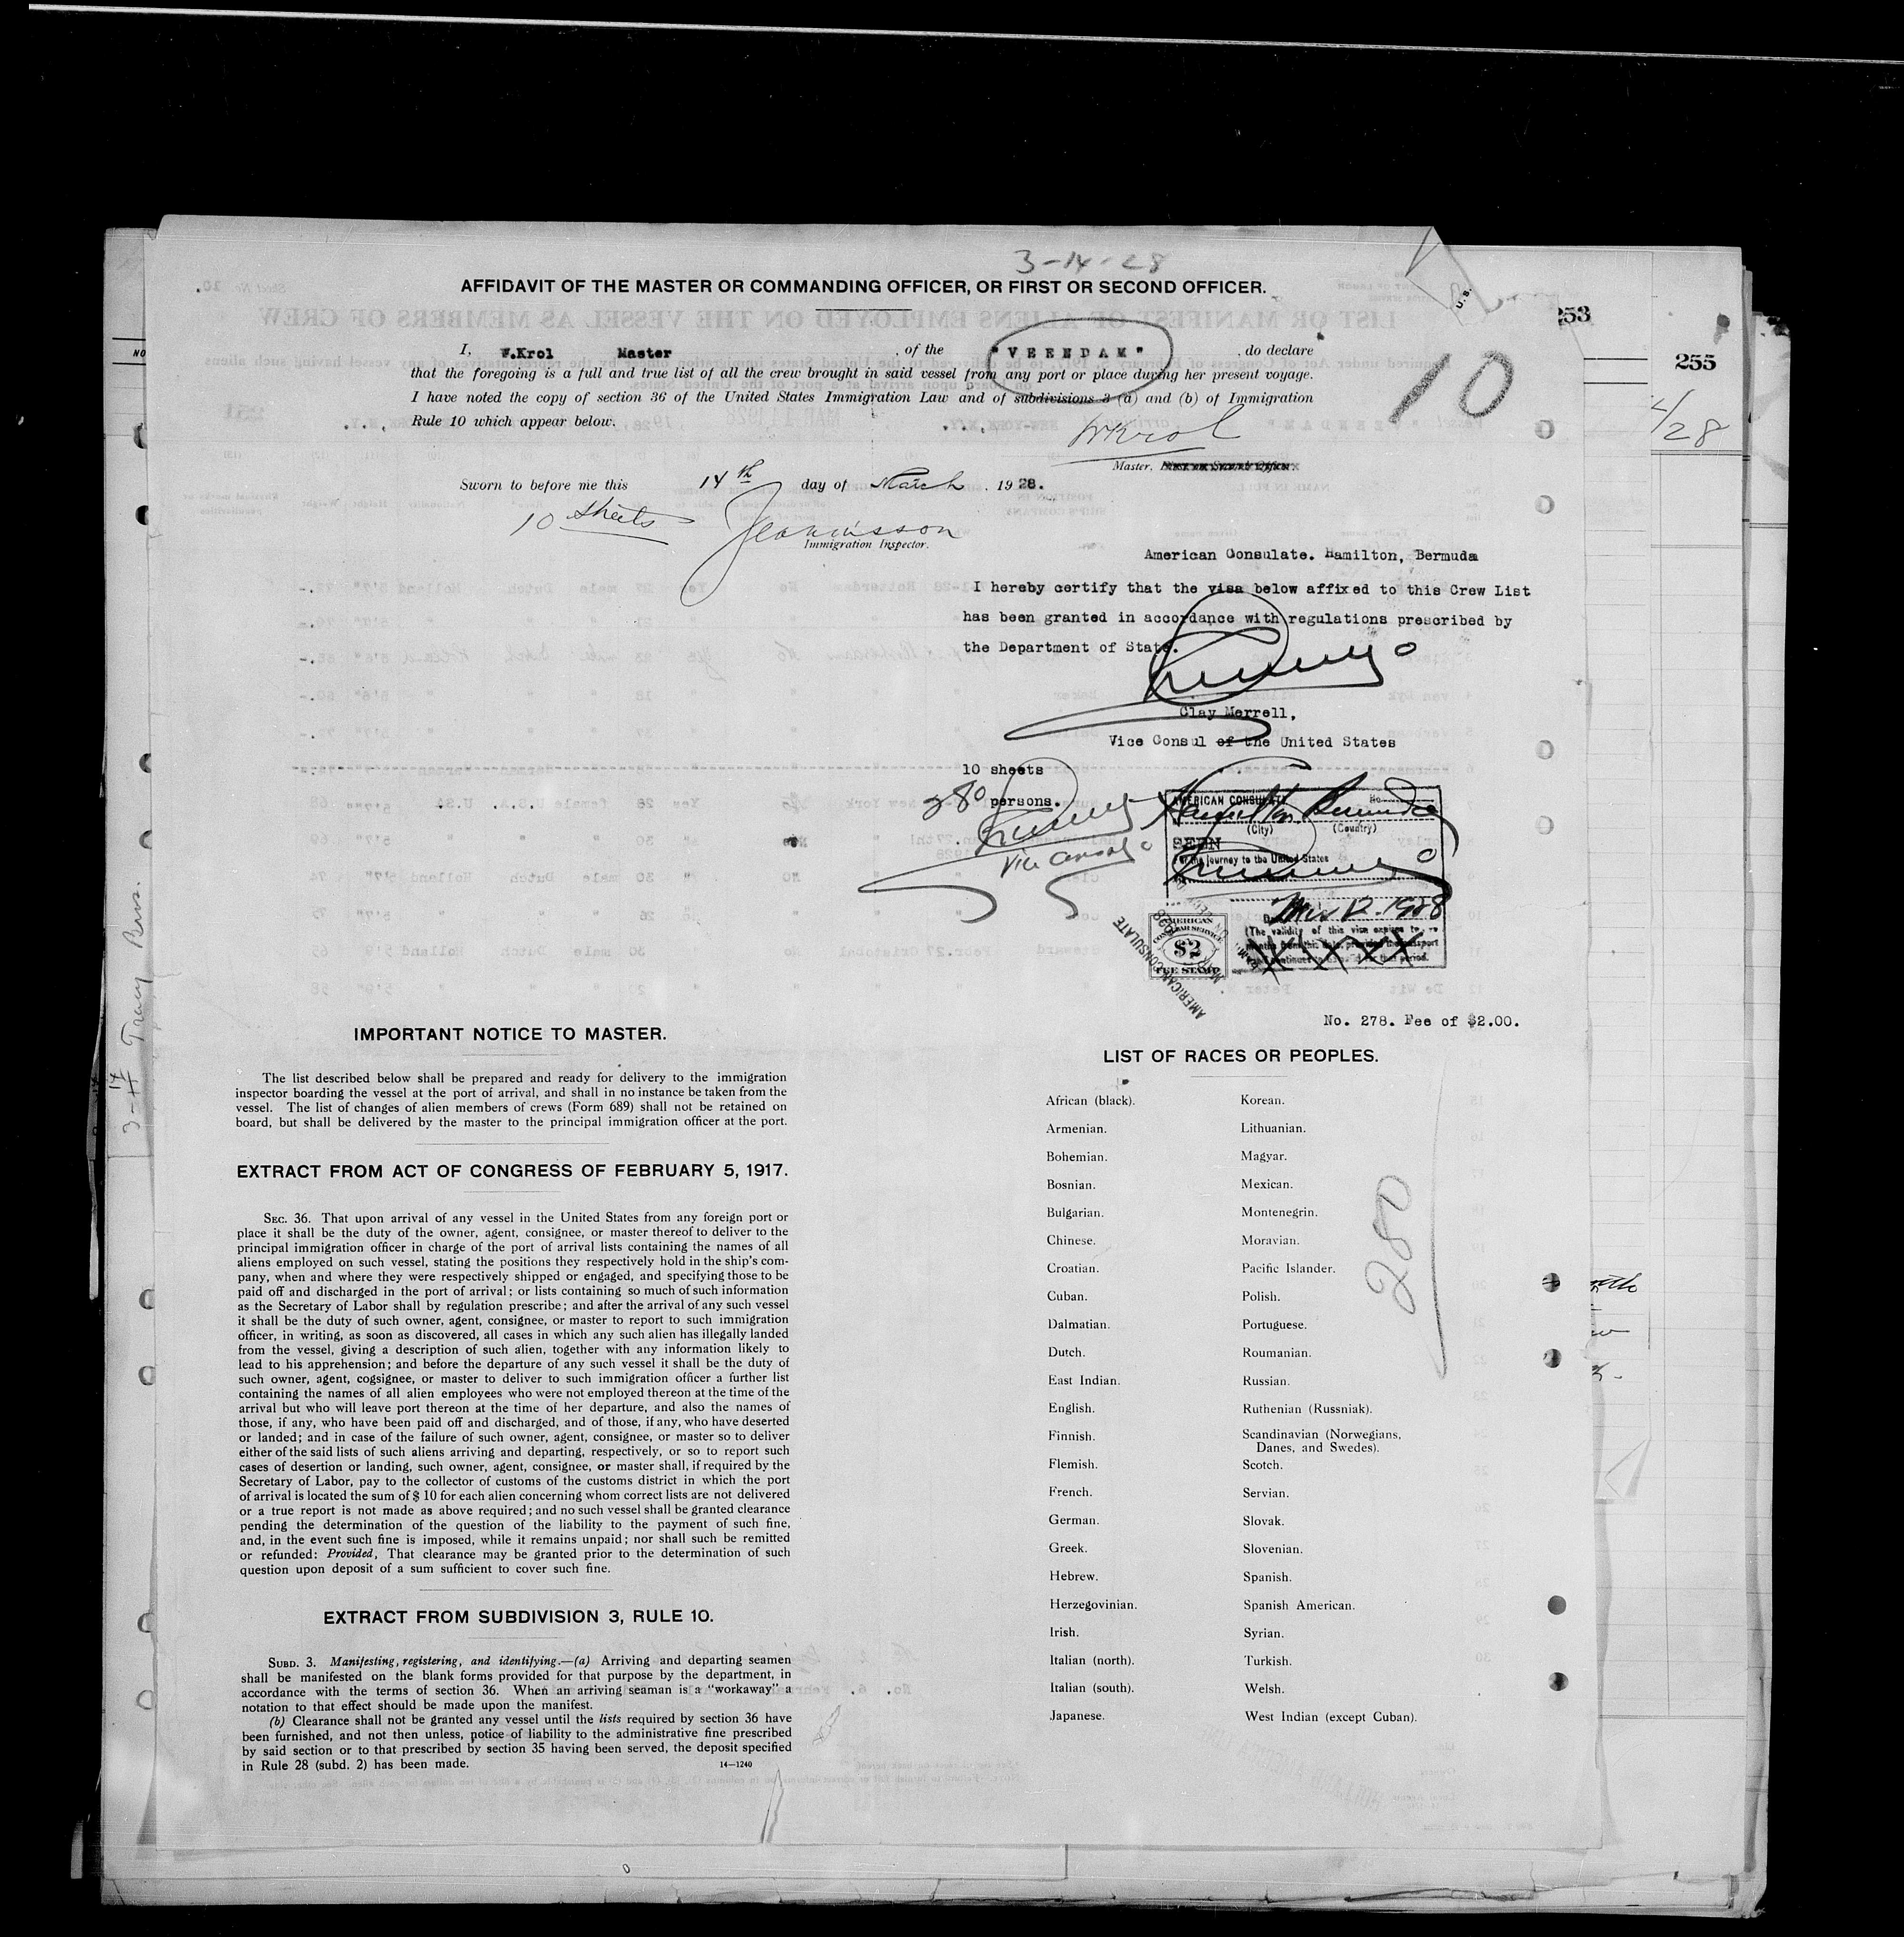 3-14-28
AFFIDAVIT OF THE MASTER OR COMMANDING OFFICER, OR FIRST OR SECOND OFFICER.
U.S.
253
255
10
4/28
NO
I, W.Krol Master , of the "VEENDAM" , do declare
that the foregoing is a full and true list of all the crew brought in said vessel from any port or place during her present voyage.
I have noted the copy of section 36 of the United States Immigration Law and of subdivisions 3 (a) and (b) of Immigration
Rule 10 which appear below.
WKrol
Master,
Sworn to before me this 14th day of March , 1928.
10 sheets
Immigration Inspector.
American Consulate. Hamilton, Bermuda
I hereby certify that the visa below affixed to this Crew List
has been granted in accordance with regulations prescribed by
the Department of State.
Clay Merrell,
Vice Consul of the United States
10 sheets
280 persons.
Vice Consul
AMERICAN CONSULATE No.
Hamilton Bermuda
(City) (Country)
SEEN
For the journey to the United States
Date Mar 12. 1928
(The validity of this visa expires
months from this date, provided the passport
continues to be valid for that period.
AMERICAN
CONSULAR SERVICE
$2
FEE STAMP
AMERICAN CONSULATE
No. 278. Fee of $2.00.
3-14 Tracy Bros.
IMPORTANT NOTICE TO MASTER.
The list described below shall be prepared and ready for delivery to the immigration
inspector boarding the vessel at the port of arrival, and shall in no instance be taken from the
vessel. The list of changes of alien members of crews (Form 689) shall not be retained on
board, but shall be delivered by the master to the principal immigration officer at the port.
EXTRACT FROM ACT OF CONGRESS OF FEBRUARY 5, 1917.
SEC. 36. That upon arrival of any vessel in the United States from any foreign port or
place it shall be the duty of the owner, agent, consignee, or master thereof to deliver to the
principal immigration officer in charge of the port of arrival lists containing the names of all
aliens employed on such vessel, stating the positions they respectively hold in the ship's com-
pany, when and where they were respectively shipped or engaged, and specifying those to be
paid off and discharged in the port of arrival; or lists containing so much of such information
as the Secretary of Labor shall by regulation prescribe; and after the arrival of any such vessel
it shall be the duty of such owner, agent, consignee, or master to report to such immigration
officer, in writing, as soon as discovered, all cases in which any such alien has illegally landed
from the vessel, giving a description of such alien, together with any information likely to
lead to his apprehension; and before the departure of any such vessel it shall be the duty of
such owner, agent, cogsignee, or master to deliver to such immigration officer a further list
containing the names of all alien employees who were not employed thereon at the time of the
arrival but who will leave port thereon at the time of her departure, and also the names of
those, if any, who have been paid off and discharged, and of those, if any, who have deserted
or landed; and in case of the failure of such owner, agent, consignee, or master so to deliver
either of the said lists of such aliens arriving and departing, respectively, or so to report such
cases of desertion or landing, such owner, agent, consignee, or master shall, if required by the
Secretary of Labor, pay to the collector of customs of the customs district in which the port
of arrival is located the sum of $ 10 for each alien concerning whom correct lists are not delivered
or a true report is not made as above required; and no such vessel shall be granted clearance
pending the determination of the question of the liability to the payment of such fine,
and, in the event such fine is imposed, while it remains unpaid; nor shall such be remitted
or refunded: Provided, That clearance may be granted prior to the determination of such
question upon deposit of a sum sufficient to cover such fine.
EXTRACT FROM SUBDIVISION 3, RULE 10.
SUBD. 3. Manifesting, registering, and identifying.—(a) Arriving and departing seamen
shall be manifested on the blank forms provided for that purpose by the department, in
accordance with the terms of section 36. When an arriving seaman is a "workaway" a
notation to that effect should be made upon the manifest.
(b) Clearance shall not be granted any vessel until the lists required by section 36 have
been furnished, and not then unless, notice of liability to the administrative fine prescribed
by said section or to that prescribed by section 35 having been served, the deposit specified
in Rule 28 (subd. 2) has been made. 14—1240
LIST OF RACES OR PEOPLES.
African (black). Korean.
Armenian. Lithuanian.
Bohemian. Magyar.
Bosnian. Mexican.
Bulgarian. Montenegrin.
Chinese. Moravian.
Croatian. Pacific Islander.
Cuban. Polish.
Dalmatian. Portuguese.
Dutch. Roumanian.
East Indian. Russian.
English. Ruthenian (Russniak).
Finnish. Scandinavian (Norwegians,
Danes, and Swedes).
Flemish. Scotch.
French. Servian.
German. Slovak.
Greek. Slovenian.
Hebrew. Spanish.
Herzegovinian. Spanish American.
Irish. Syrian.
Italian (north). Turkish.
Italian (south). Welsh.
Japanese. West Indian (except Cuban).
280